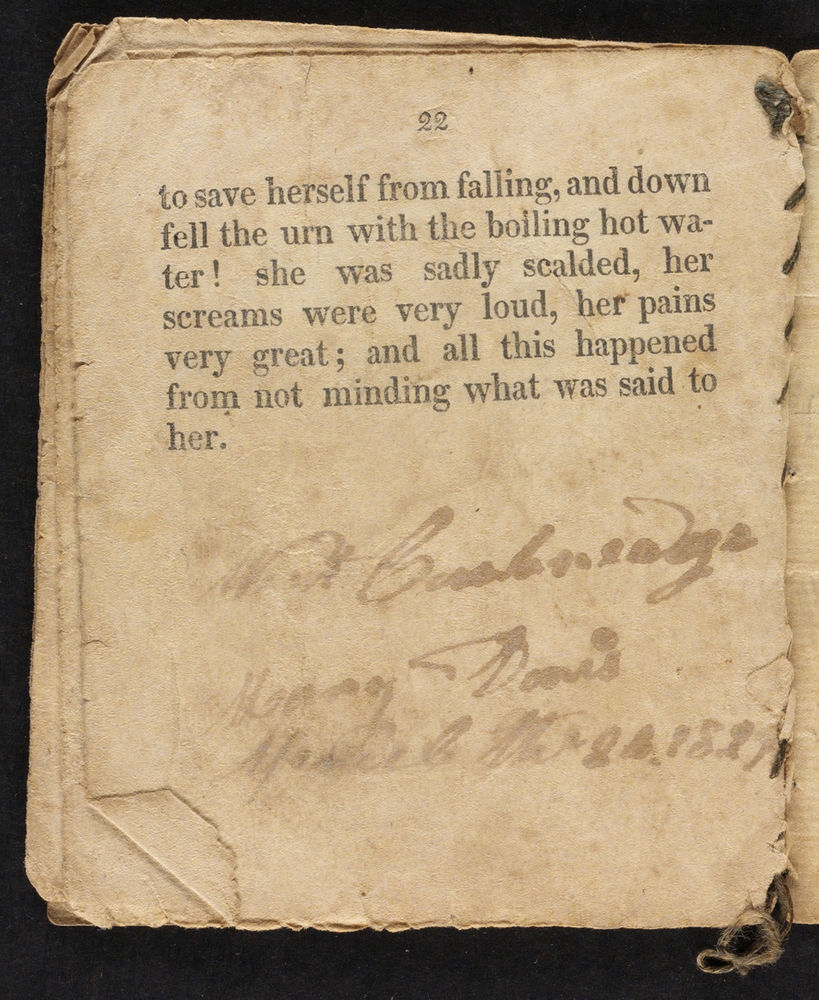 22
to save herself from falling, and down
fell the urn with the boiling hot wa-
ter! she was sadly scalded, her
screams were very loud, her pains
very great; and all this happened
from not minding what was said to
her.
West Cambridge
Davis
March The 26. 1827